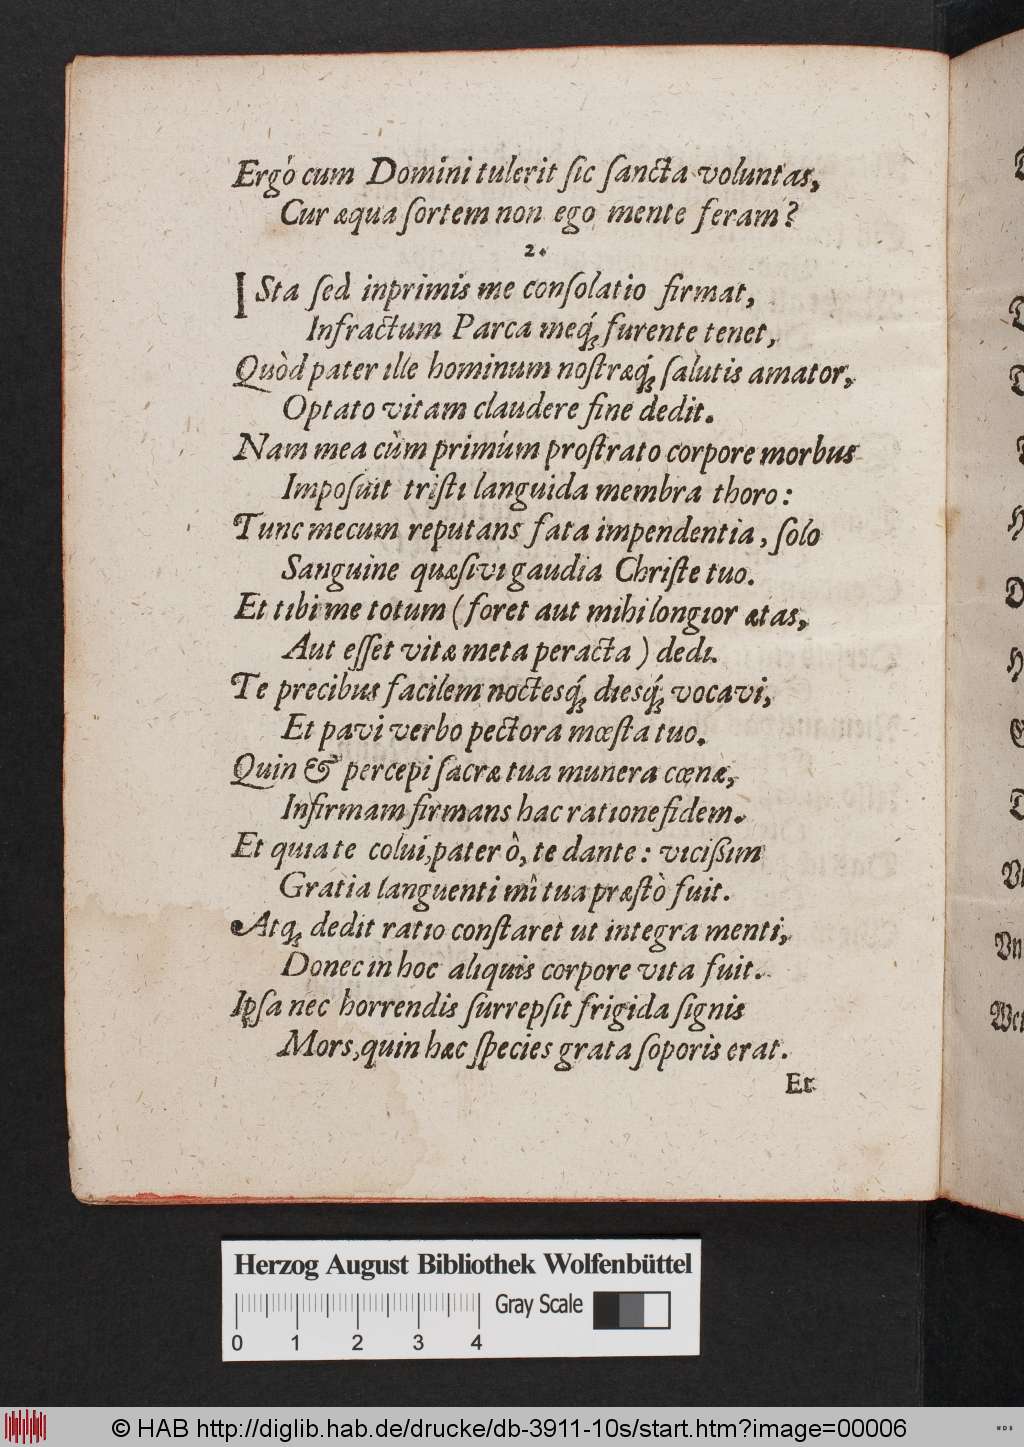 Ergò cum Domini tulerit ſic ſancta voluntas,
Cur æqua ſortem non ego mente feram?
2.
ISta ſed inprimis me conſolatio firmat,
Infractum Parca meq́; furente tenet,
Quòd pater ille hominum noſtræq́; ſalutis amator,
Optato vitam claudere fine dedit.
Nam mea cùm primùm proſtrato corpore morbus
Impoſuit triſti languida membra thoro:
Tunc mecum reputans fata impendentia, ſolo
Sanguine quæſivi gaudia Chriſte tuo.
Et tibi me totum (foret aut mihi longior ætas,
Aut eſſet vitæ meta peracta) dedi.
Te precibus facilem noctesq́; diesq́; vocavi,
Et pavi verbo pectora mœſta tuo.
Quin & percepi ſacræ tua munera cœnæ,
Infirmam firmans hac ratione fidem.
Et quia te colui, pater ô, te dante: viciſsim
Gratia languenti mî tua præſtò fuit.
Atq; dedit ratio conſtaret ut integra menti,
Donec in hoc aliquis corpore vita fuit.
Ipſa nec horrendis ſurrepſit frigida ſignis
Mors, quin hæc ſpecies grata ſoporis erat.
Et
D
D
D
H
D
H
E
D
Vn
Wei
Herzog August Bibliothek Wolfenbüttel
Gray Scale
0 1 2 3 4
© HAB http://diglib.hab.de/drucke/db-3911-10s/start.htm?image=00006